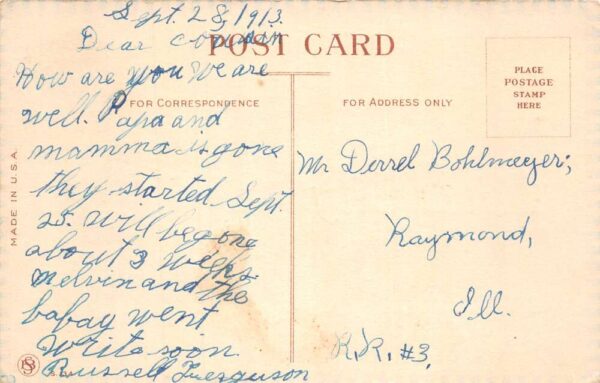 Sept. 28, 1913.
Dear cousin
POST CARD
How are you We are
well. Papa and
mamma is gone
they started Sept.
25. will be gone
about 3 weeks.
Melvin and the
babay went
Write soon
Russell Ferguson
FOR CORRESPONDENCE
FOR ADDRESS ONLY
PLACE
POSTAGE
STAMP
HERE
Mr Derrel Bohlmeyer,
Raymond,
Ill.
R.R. #3.
MADE IN U.S.A.